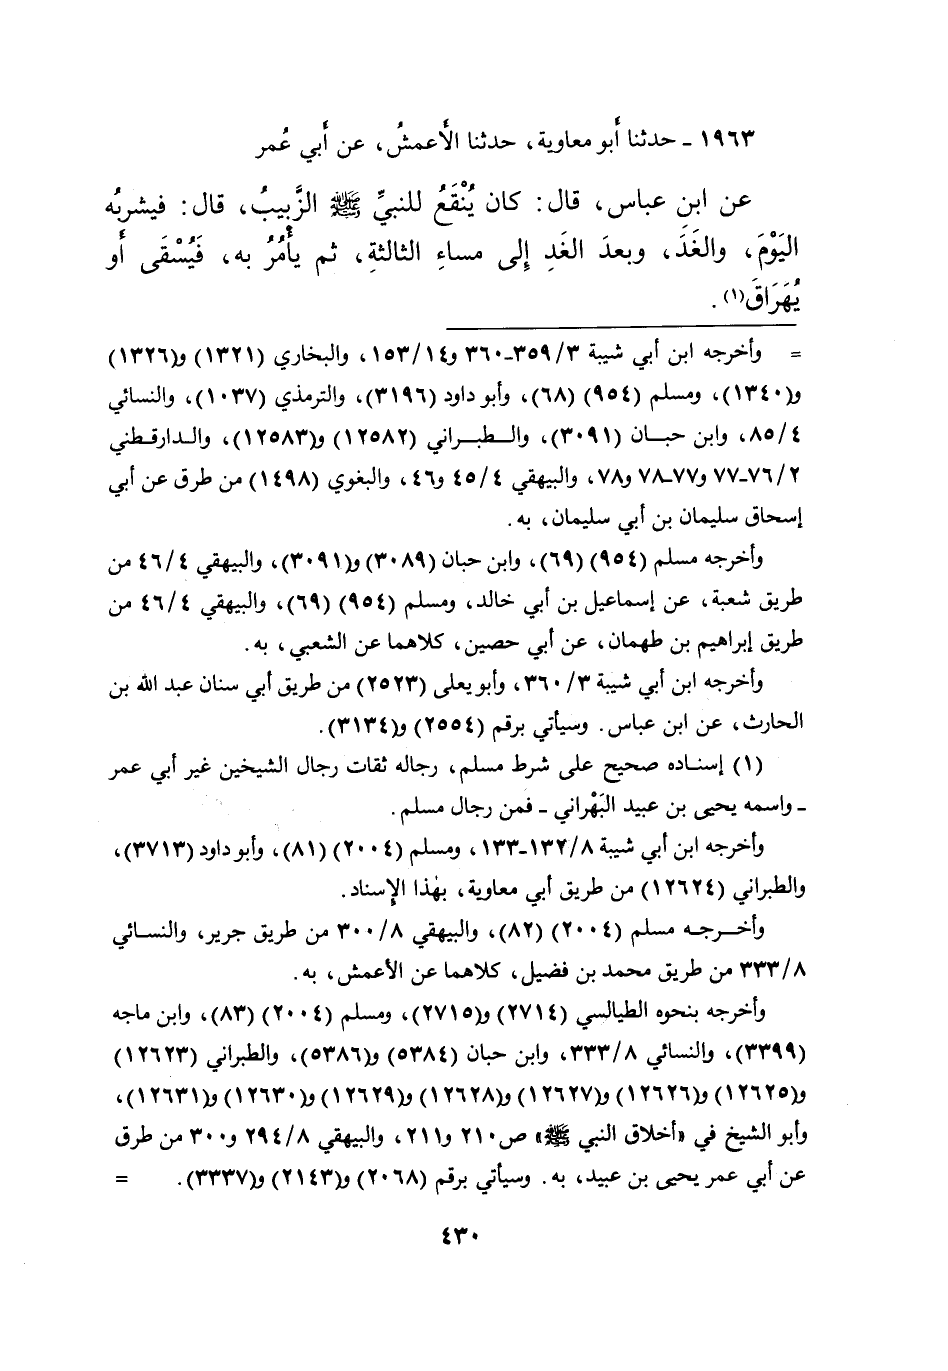 ١٩٦٣ ـ حدثنا أبو معاوية، حدثنا الأعمشُ، عن أبي عُمر
عن ابن عباس، قال: كان يُنْقَعُ للنبيِّ ﷺ الزَّبِيبُ، قال: فيشربُه
اليَوْمَ، والغَدَ، وبعدَ الغَدِ إلى مساءِ الثالثةِ، ثم يأْمُرُ به، فَيُسْقَى أو
يُهَرَاقَ(١).
= وأخرجه ابن أبي شيبة ٣/٣٥٩ـ٣٦٠ و١٤/١٥٣، والبخاري (١٣٢١) و(١٣٢٦)
و(١٣٤٠)، ومسلم (٩٥٤) (٦٨)، وأبو داود (٣١٩٦)، والترمذي (١٠٣٧)، والنسائي
٤/٨٥، وابن حبان (٣٠٩١)، والطبراني (١٢٥٨٢) و(١٢٥٨٣)، والدارقطني
٢/٧٦ـ٧٧ و٧٧ـ٧٨ و٧٨، والبيهقي ٤/٤٥ و٤٦، والبغوي (١٤٩٨) من طرق عن أبي
إسحاق سليمان بن أبي سليمان، به.
وأخرجه مسلم (٩٥٤) (٦٩)، وابن حبان (٣٠٨٩) و(٣٠٩١)، والبيهقي ٤/٤٦ من
طريق شعبة، عن إسماعيل بن أبي خالد، ومسلم (٩٥٤) (٦٩)، والبيهقي ٤/٤٦ من
طريق إبراهيم بن طهمان، عن أبي حصين، كلاهما عن الشعبي، به.
وأخرجه ابن أبي شيبة ٣/٣٦٠، وأبو يعلى (٢٥٢٣) من طريق أبي سنان عبد الله بن
الحارث، عن ابن عباس. وسيأتي برقم (٢٥٥٤) و(٣١٣٤).
(١) إسناده صحيح على شرط مسلم، رجاله ثقات رجال الشيخين غير أبي عمر
ـ واسمه يحيى بن عبيد البَهْراني ـ فمن رجال مسلم.
وأخرجه ابن أبي شيبة ٨/١٣٢ـ١٣٣، ومسلم (٢٠٠٤) (٨١)، وأبو داود (٣٧١٣)،
والطبراني (١٢٦٢٤) من طريق أبي معاوية، بهٰذا الإسناد.
وأخرجه مسلم (٢٠٠٤) (٨٢)، والبيهقي ٨/٣٠٠ من طريق جرير، والنسائي
٨/٣٣٣ من طريق محمد بن فضيل، كلاهما عن الأعمش، به.
وأخرجه بنحوه الطيالسي (٢٧١٤) و(٢٧١٥)، ومسلم (٢٠٠٤) (٨٣)، وابن ماجه
(٣٣٩٩)، والنسائي ٨/٣٣٣، وابن حبان (٥٣٨٤) و(٥٣٨٦)، والطبراني (١٢٦٢٣)
و(١٢٦٢٥) و(١٢٦٢٦) و(١٢٦٢٧) و(١٢٦٢٨) و(١٢٦٢٩) و(١٢٦٣٠) و(١٢٦٣١)،
وأبو الشيخ في «أخلاق النبي ﷺ» ص٢١٠ و٢١١، والبيهقي ٨/٢٩٤ و٣٠٠ من طرق
عن أبي عمر يحيى بن عبيد، به. وسيأتي برقم (٢٠٦٨) و(٢١٤٣) و(٣٣٣٧). =
٤٣٠